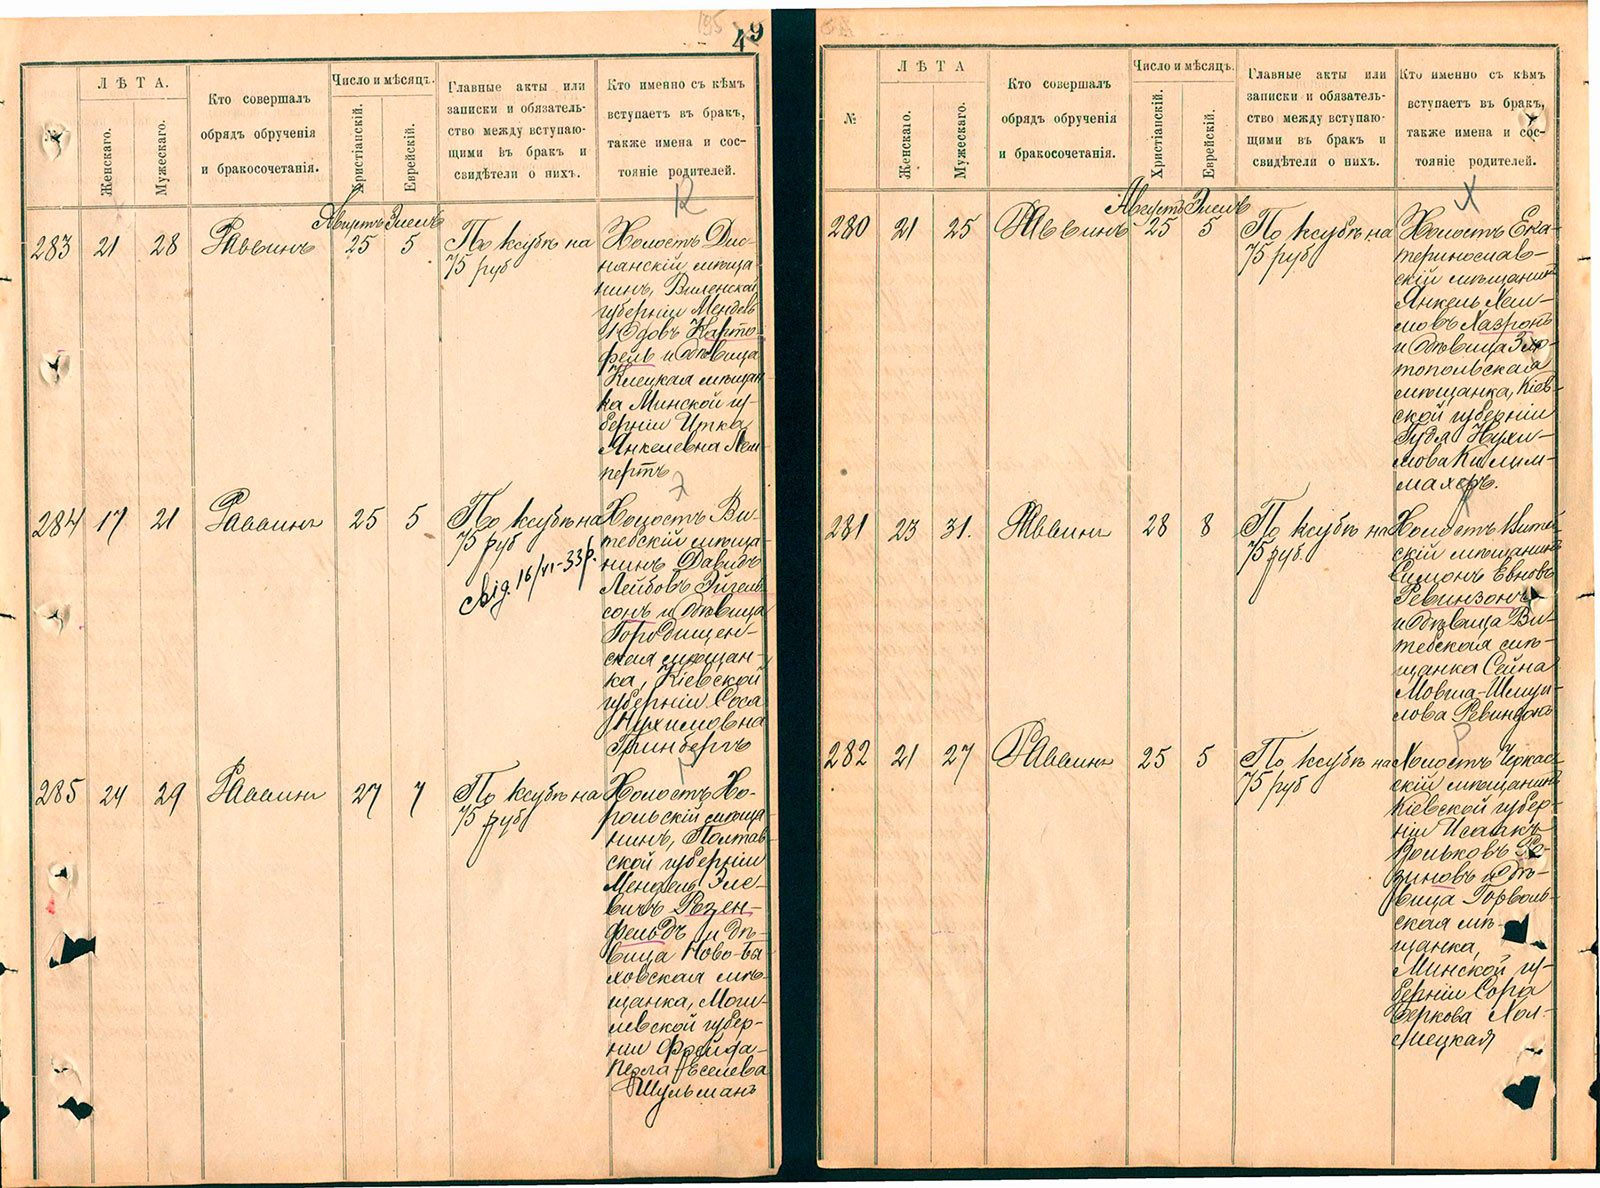 195
49
ЛѢТА.
Женскаго.
Мужескаго.
Кто совершалъ
обрядъ обрученія
и бракосочетанія.
Число и мѣсяцъ.
Христіанскій.
Еврейскій.
Главные акты или
записки и обязатель-
ство между вступаю-
щими въ бракъ и
свидѣтели о нихъ.
Кто именно съ кѣмъ
вступаетъ въ бракъ,
также имена и сос-
тояніе родителей.
К
Августъ Элелъ
283 21 28 Раввинъ 25 5
По ксубѣ на
75 руб
Холостъ Дис-
нанскій мѣща
нинъ, Виленской
губерніи Мендель
Юдовъ Карто-
фель и дѣвица
Клецкая мѣщан
ка Минской гу-
берніи Итка
Янкелевна Лем
пертъ
284 17 21 Раввинъ 25 5
По ксубѣ на
75 руб
свід. 16/VI-33р.
Э
Холостъ Ви-
тебскій мѣща-
нинъ Давидъ
Лейбовъ Эйгель
сонъ и дѣвица
Городищен-
ская мѣщан-
ка, Кіевской
губерніи Соса
Нухимовна
Гринбергъ
285 24 29 Раввинъ 27 7
По ксубѣ на
75 руб
Р
Холостъ Хо-
рольскій мѣща-
нинъ, Полтав
ской губерніи
Мендель Эле-
вичъ Розен-
фельдъ и дѣ-
вица Ново-Бы
ховская мѣ-
щанка, Моги-
левской губер-
ніи Фрейда-
Перла Евселева
Шульманъ
№
ЛѢТА
Женскаго.
Мужескаго.
Кто совершалъ
обрядъ обрученія
и бракосочетанія.
Число и мѣсяцъ.
Христіанскій.
Еврейскій.
Главные акты или
записки и обязатель-
ство между вступаю-
щими въ бракъ и
свидѣтели о нихъ.
Кто именно съ кѣмъ
вступаетъ въ бракъ,
также имена и сос-
тояніе родителей.
Х
Августъ Элелъ
280 21 25 Раввинъ 25 5
По ксубѣ на
75 руб
Холостъ Ека-
теринослав-
скій мѣщанинъ
Янкель Хаи-
мовъ Хазронъ
и дѣвица Зло
топольская
мѣщанка, Кіев-
ской губерніи
Гудя Нухи-
мова Килим-
махеръ.
281 23 31. Раввинъ 28 8
По ксубѣ на
75 руб.
Холостъ Витеб
скій мѣщанинъ
Симонъ Евновъ
Ревинзонъ
и дѣвица Ви-
тебская мѣ-
щанка Сейна
Мовша-Шмуи-
лова Ревинзонъ
282 21 27 Раввинъ 25 5
По ксубѣ на
75 руб
Р
Холостъ Черкас
скій мѣщанинъ
Кіевской губер-
ніи Исаакъ
Вольковъ Ра-
зиновъ и дѣ-
вица Горволь-
ская мѣ-
щанка,
Минской гу-
берніи Сора
Беркова Хол-
мецкая